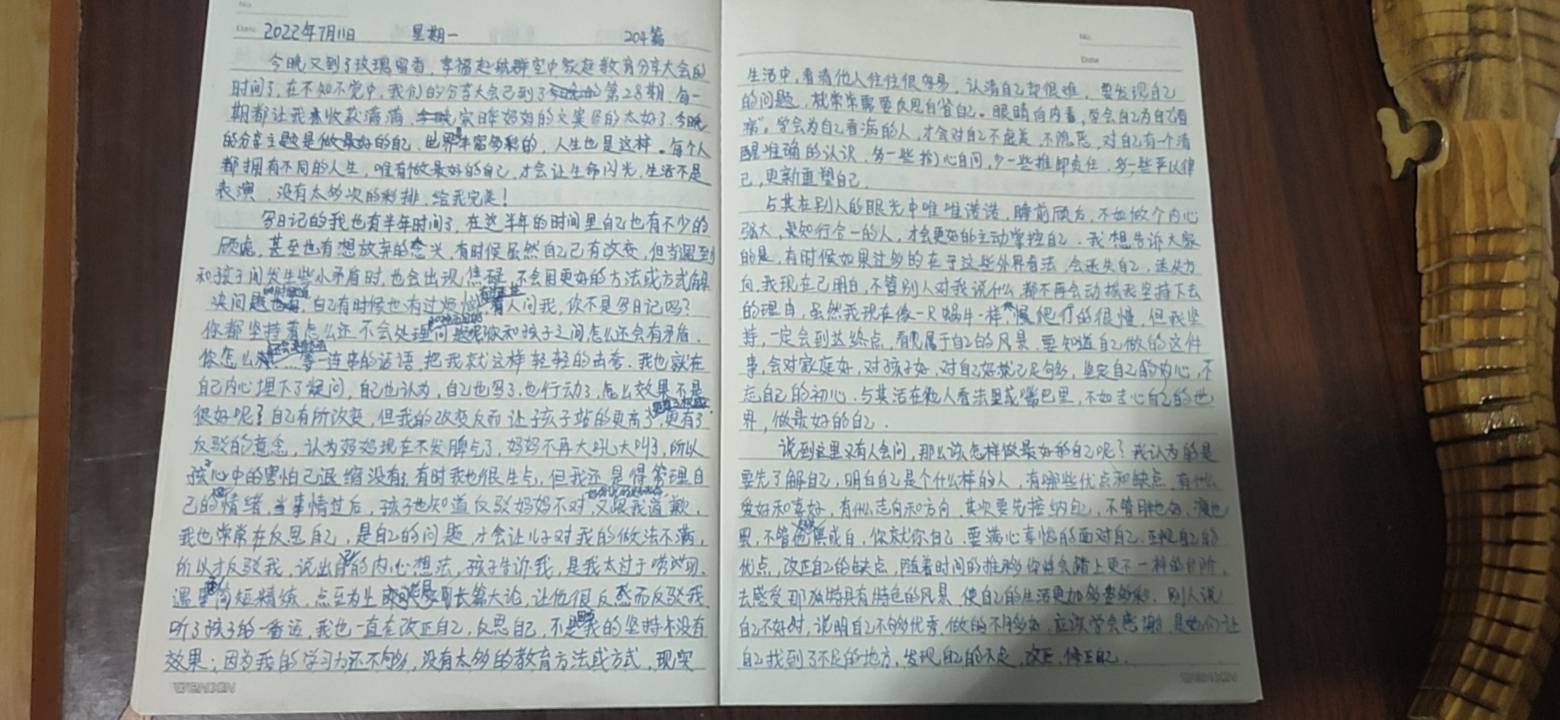 No.
Date 2022年7月11日 星期一 204篇
今晚又到了玫瑰留香,幸福起航群空中家庭教育分享大会的
时间了,在不知不觉中,我们的分享大会已到了第28期,每一
期都让我收获满满,文案写的太好了,今晚
的分享主题是做最好的自己,世界丰富多彩的,人生也是这样。每个人
都拥有不同的人生,唯有做最好的自己,才会让生命闪光,生活不是
表演,没有太多次的彩排,给我完美!
写日记的我也有半年时间了,在这半年的时间里自己也有不少的
顾虑,甚至也有想放弃的念头,有时候虽然自己有改变,但当遇到
和孩子间发生些小矛盾时,也会出现焦躁,不会用更好的方法或方式解
决问题,自己有时候也有过烦恼,有人问我,你不是写日记吗?
你都坚持着怎么还不会处理问题呢你和孩子之间怎么还会有矛盾,
你怎么 一连串的话语,把我就这样轻轻的击夸,我也就在
自己内心埋下了疑问,自己也认为,自己也写了,也行动了,怎么效果不是
很好呢?自己有所改变,但我的改变反而让孩子站的更高了,更有了
反驳的意念,认为妈妈现在不发脾气了,妈妈不再大吼大叫了,所以
孩子心中的害怕已退缩没有了,有时我也很生气,但我还是得管理自
己的情绪,当事情过后,孩子也知道反驳妈妈不对,又跟我道歉,
我也常常在反思自己,是自己的问题,才会让儿子对我的做法不满,
所以才反驳我,说出自己的内心想法,孩子告诉我,是我太过于唠叨,
遇事简短精炼,点至为止 长篇大论,让他很反感而反驳我
听了孩子的一番话,我也一直在改正自己,反思自己,不是我的坚持没有
效果;因为我的学习力还不够,没有太多的教育方法或方式,现实
No.
Date
生活中,看清他人往往很容易,认清自己却很难,要发现自己
的问题,就常常需要反思自省自己。眼睛向内看,学会自己为自己"看
病"。学会为自己看病的人,才会对自己不虚美,不隐恶,对自己有一个清
醒准确的认识,多一些扪心自问,少一些推卸责任,多一些严以律
己,更新重塑自己。
与其在别人的眼光中唯唯诺诺,瞻前顾后,不如做个内心
强大,是知行合一的人,才会更好的主动掌控自己,我想告诉大家
的是,有时候如果过多的在于这些外界看法,会迷失自己,迷失方
向,我现在已明白,不管别人对我说什么,都不再会动摇我坚持下去
的理由,虽然我现在像一只蜗牛一样,慢爬行的很慢,但我坚
持,一定会到达终点,看见属于自己的风景,要知道自己做的这件
事,会对家庭好,对孩子好,对自己好就已足够,坚定自己的初心,不
忘自己的初心,与其活在他人看法里或嘴巴里,不如走心自己的世
界,做最好的自己。
说到这里又有人会问,那么该怎样做最好的自己呢?我认为的是
要先了解自己,明白自己是个什么样的人,有哪些优点和缺点,有什么
爱好和喜好,有什么走向和方向,其次要先接纳自己,不管胖也好,瘦也
罢,不管 黑或白,你就你自己,要满心幸福的面对自己,正视自己的
优点,改正自己的缺点,随着时间的推移你将会踏上更不一样的台阶,
去感受那独特具有特色的风景,使自己的生活更加多姿多彩,别人说
自己不好时,说明自己不够优秀,做的不够多好,应该学会感谢,是她们让
自己找到了不足的地方,发现自己的不足,改正,修正自己.